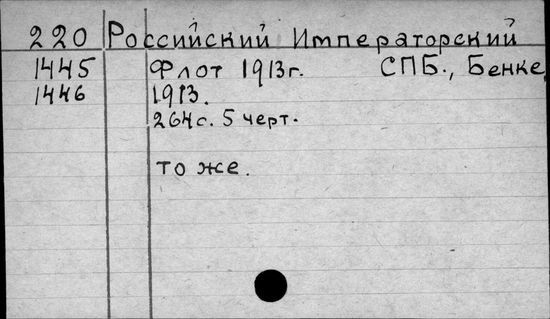 220 Российский Императорский
1445 Флот 1913г. СПБ., Бенке,
1446 1913.
264с. 5 черт.
то же.